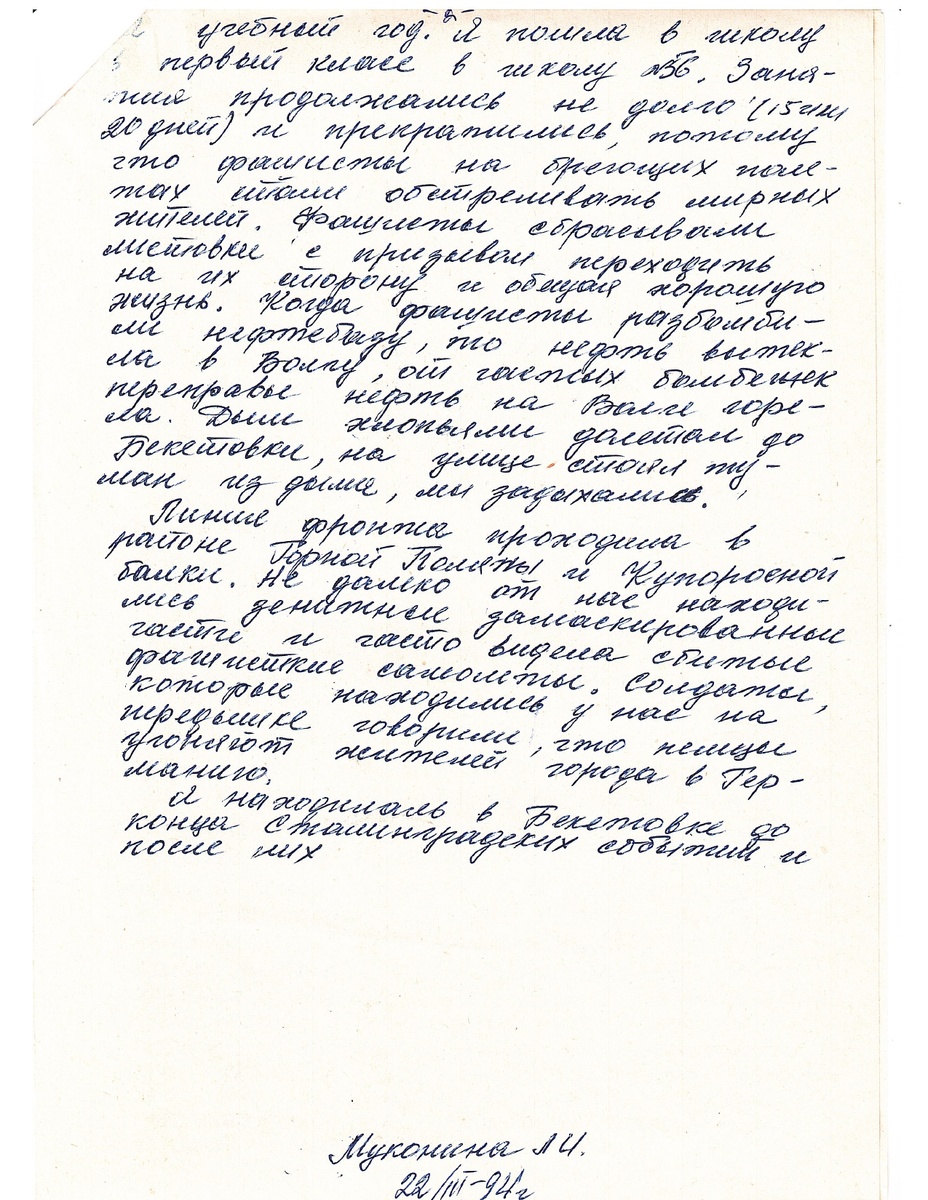 учебный год. Я пошла в школу
в первый класс в школу №56. Заня-
тия продолжались не долго (15 или
20 дней) и прекратились, потому
что фашисты на бреющих поле-
тах стали обстреливать мирных
жителей. Фашисты сбрасывали
листовки с призывом переходить
на их сторону и обещая хорошую
жизнь. Когда фашисты разбомби-
ли нефтебазу, то нефть вытек-
ла в Волгу, от частых бомбежек
переправы нефть на Волге горе-
ла. Дым хлопьями долетал до
Бекетовки, на улице стоял ту-
ман из дыма, мы задыхались.
Линия фронта проходила в
районе Горной Поляны и Купоросной
балки. Не далеко от нас находи-
лись зенитные замаскированные
части и часто видела сбитые
фашисткие самолеты. Солдаты,
которые находились у нас на
передышке говорили, что немцы
угоняют жителей города в Гер-
манию.
Я находилаль в Бекетовке до
конца Сталинградских событий и
после них
Муконина Л.И.
22/III-94г